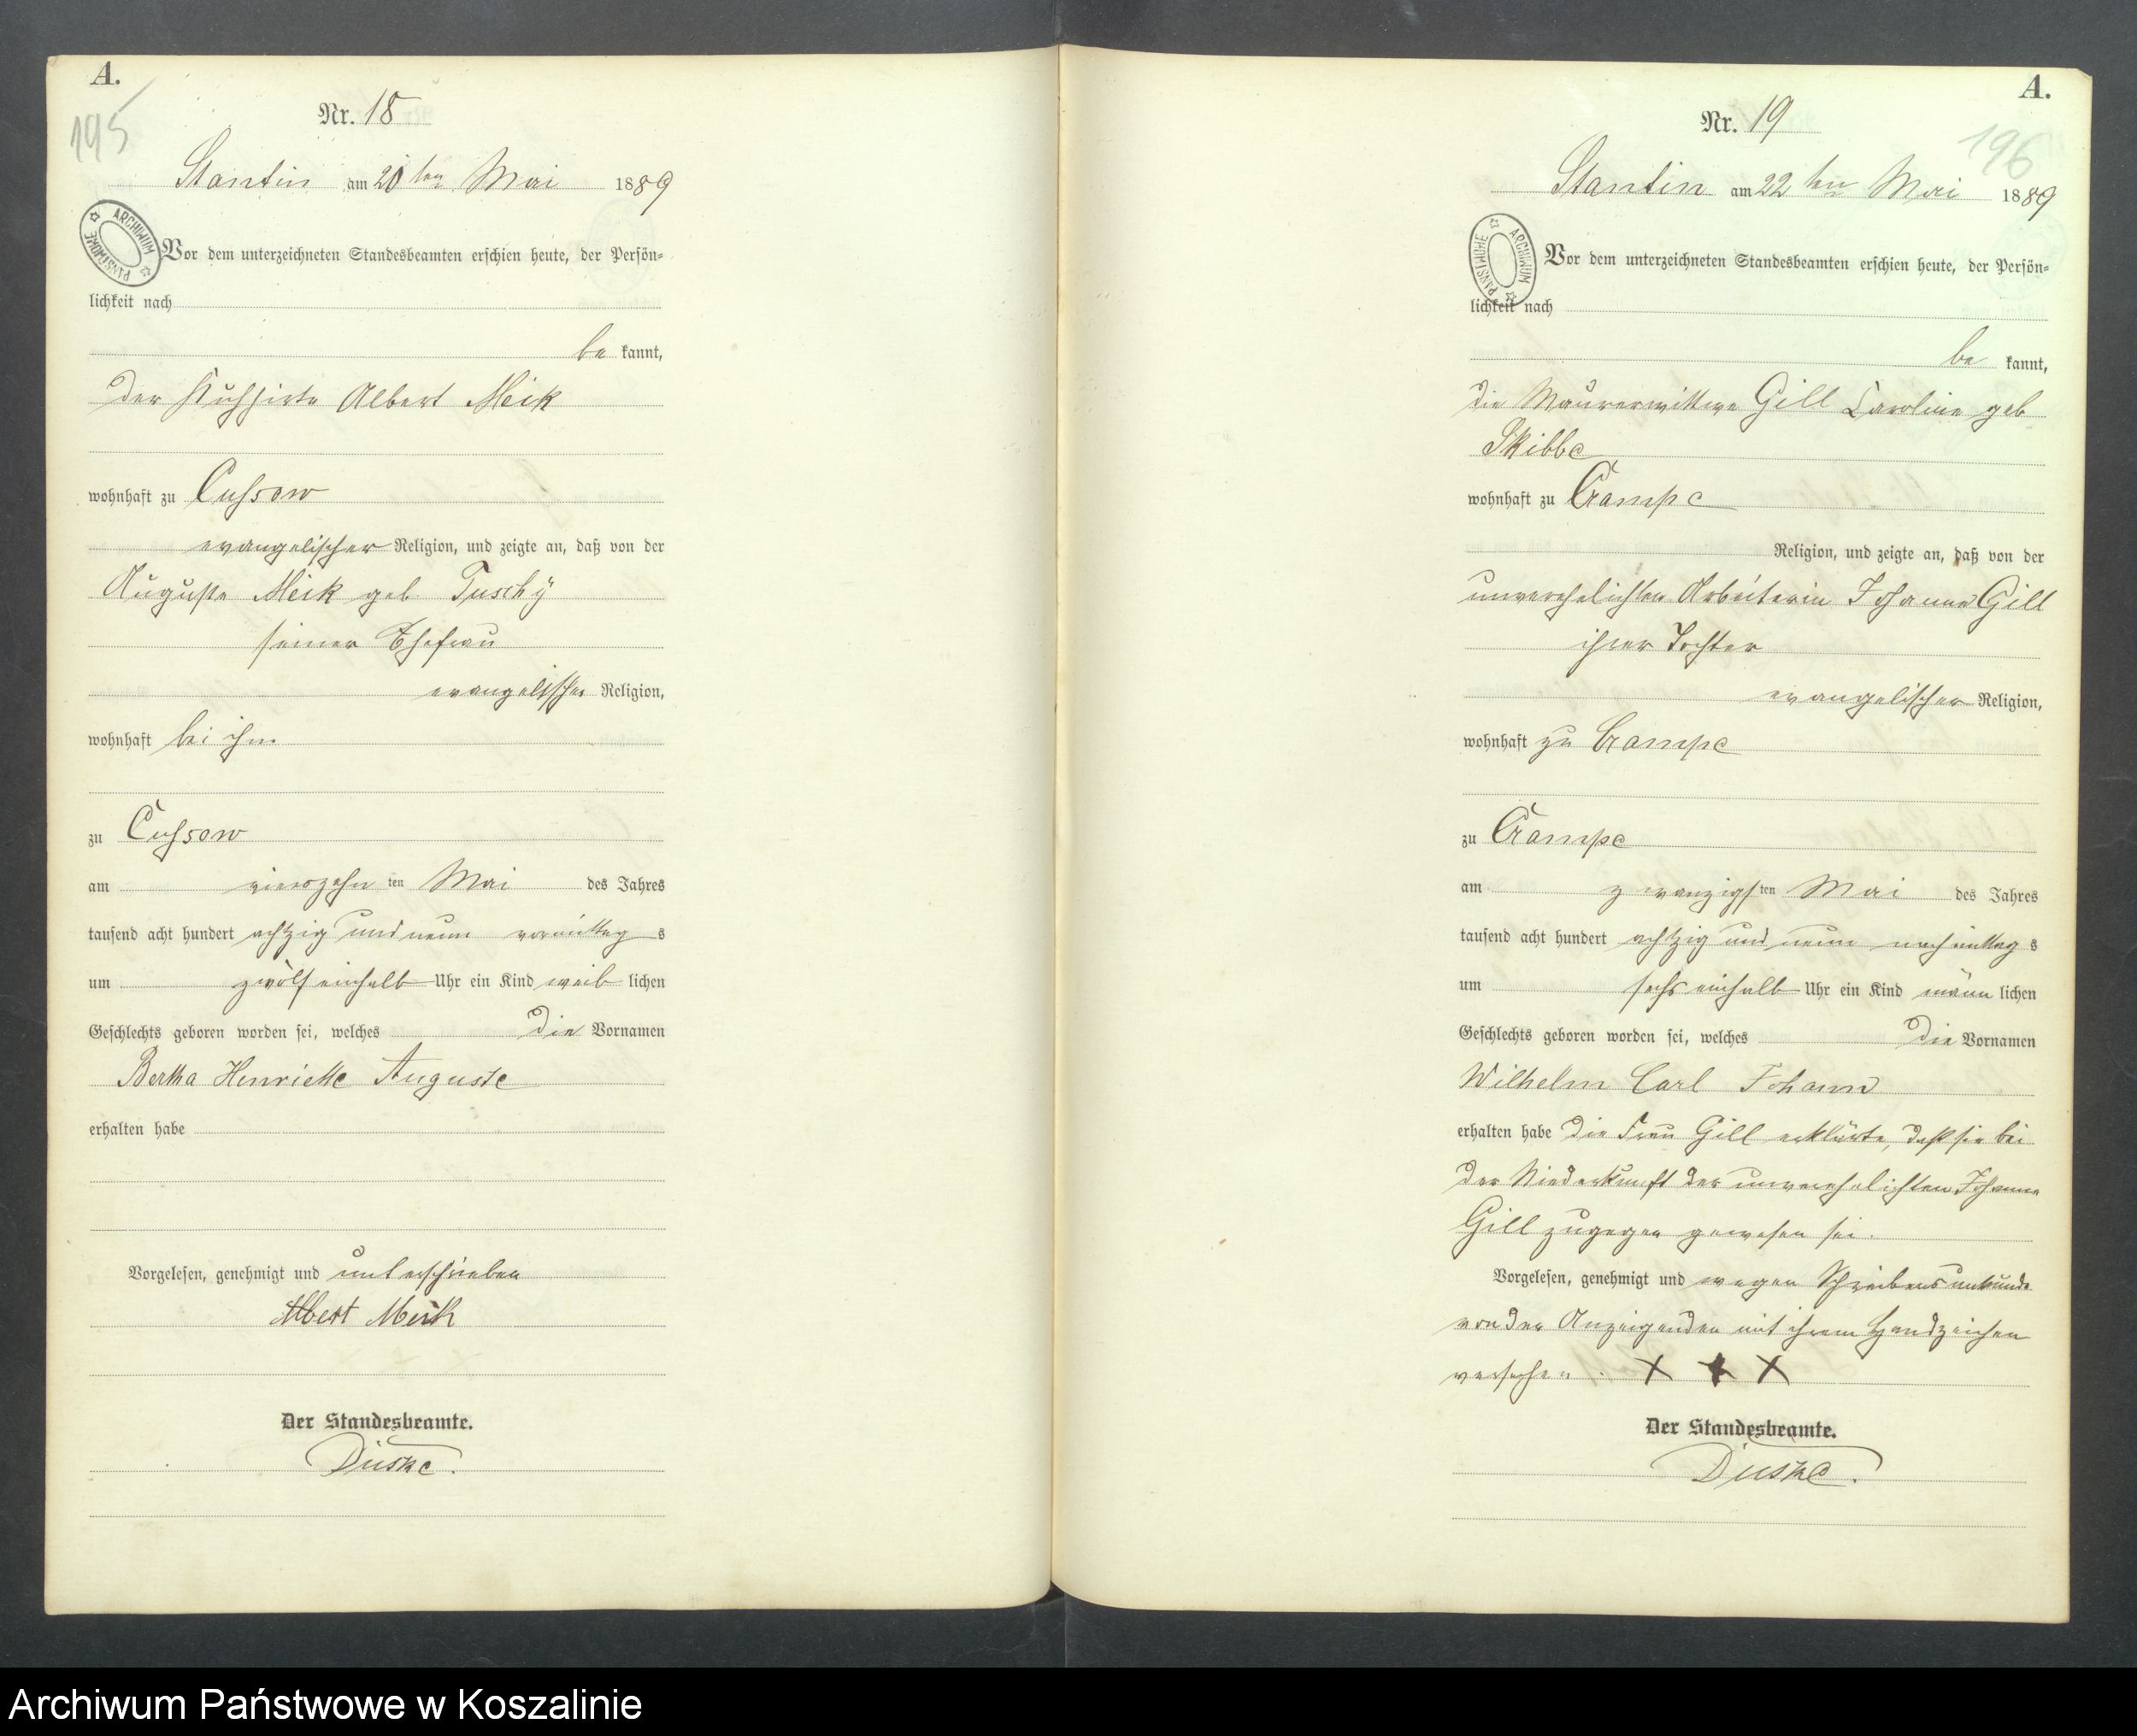 A.
195
Nr. 18
Stantin am 20ten Mai 1889
ARCHIWUM PAŃSTWOWE
Vor dem unterzeichneten Standesbeamten erschien heute, der Persön-
lichkeit nach
be kannt,
der Kuhhirte Albert Meik
wohnhaft zu Cussow
evangelischer Religion, und zeigte an, daß von der
Auguste Meik geb Tuschy
seiner Ehefrau
evangelischer Religion,
wohnhaft bei ihm
zu Cussow
am vierzehn ten Mai des Jahres
tausend acht hundert achtzig und neun vormittag s
um zwölf einhalb Uhr ein Kind weib lichen
Geschlechts geboren worden sei, welches die Vornamen
Bertha Henriette Auguste
erhalten habe
Vorgelesen, genehmigt und unterschrieben
Albert Meik
Der Standesbeamte.
Duske.
A.
196
Nr. 19
Stantin am 22ten Mai 1889
ARCHIWUM PAŃSTWOWE
Vor dem unterzeichneten Standesbeamten erschien heute, der Persön-
lichkeit nach
be kannt,
die Maurerwittwe Gill Caroline geb
Skibbe
wohnhaft zu Crampe
Religion, und zeigte an, daß von der
unverehelichten Arbeiterin Johanne Gill
ihrer Tochter
evangelischer Religion,
wohnhaft zu Crampe
zu Crampe
am zwanzigsten Mai des Jahres
tausend acht hundert achtzig und neun nachmittag s
um sechs einhalb Uhr ein Kind männ lichen
Geschlechts geboren worden sei, welches die Vornamen
Wilhelm Carl Johann
erhalten habe die Frau Gill erklärte, daß sie bei
der Niederkunft der unverehelichten Johanne
Gill zugegen gewesen sei.
Vorgelesen, genehmigt und wegen Schreibensunkunde
von der Anzeigenden mit ihrem Handzeichen
versehen. X X X
Der Standesbeamte.
Duske.
Archiwum Państwowe w Koszalinie